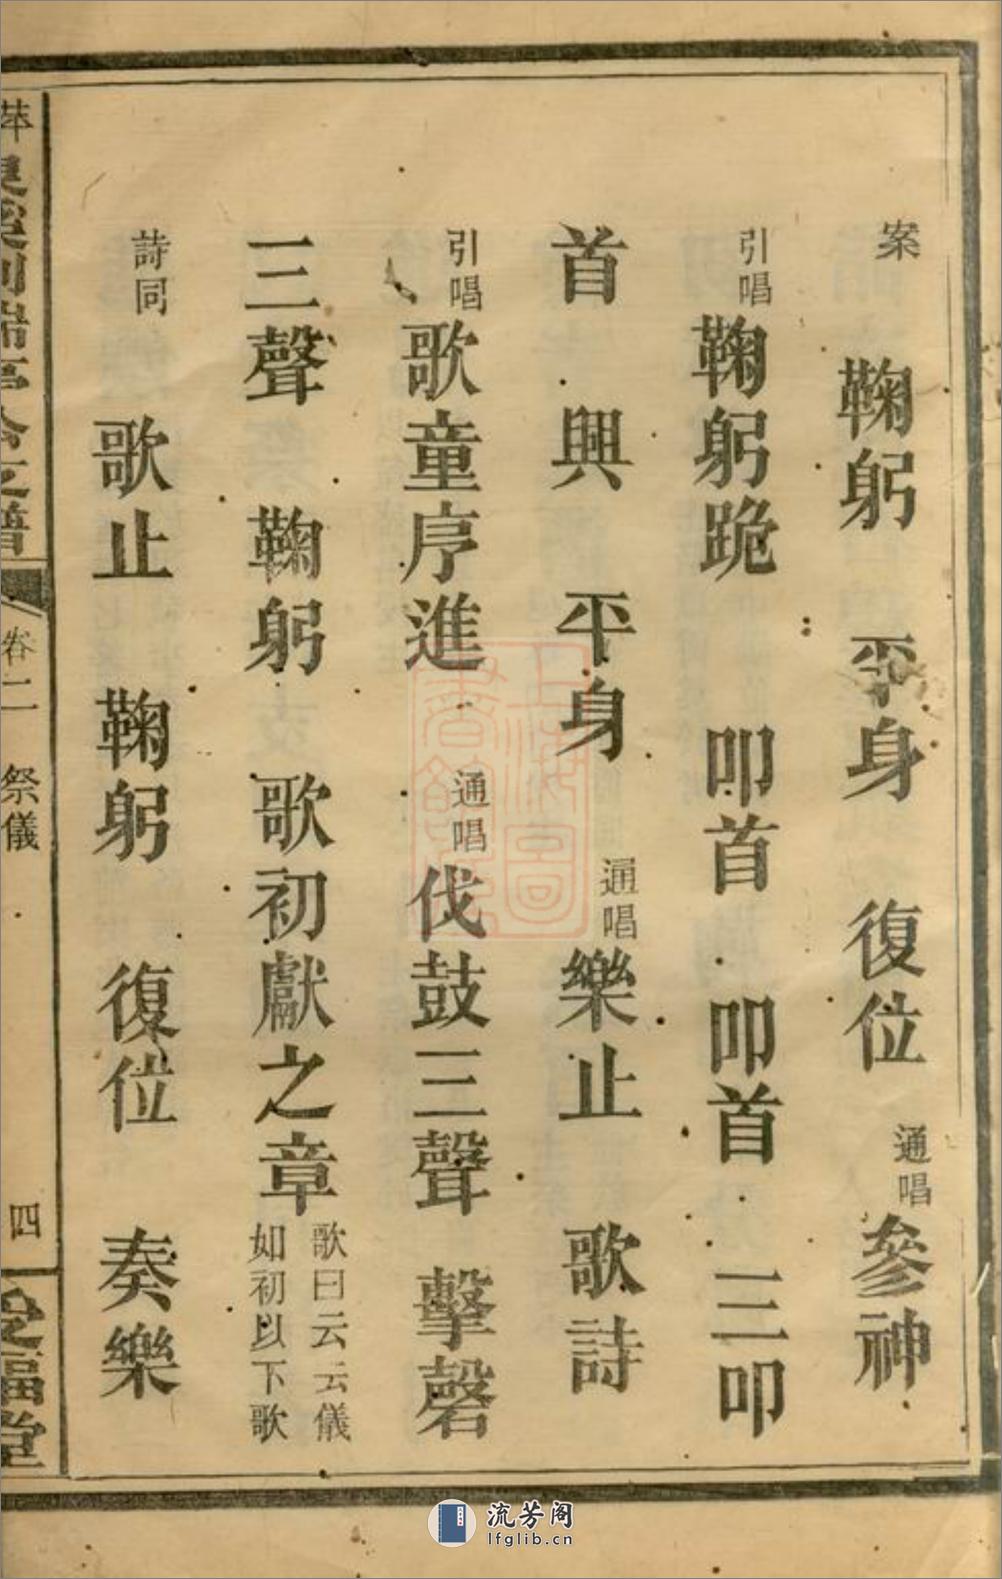 案　鞠躬　平身　復位　通唱參神
引唱鞠躬跪　叩首　叩首　三叩
首　興　平身　通唱樂止　歌詩
引唱歌童序進　通唱伐鼓三聲　擊磬
三聲　鞠躬　歌初獻之章　歌曰云云儀
如初以下歌
詩同　歌止　鞠躬　復位　奏樂
卷二　祭儀
四
受福堂
上海圖書館藏
流芳阁
lfglib.cn